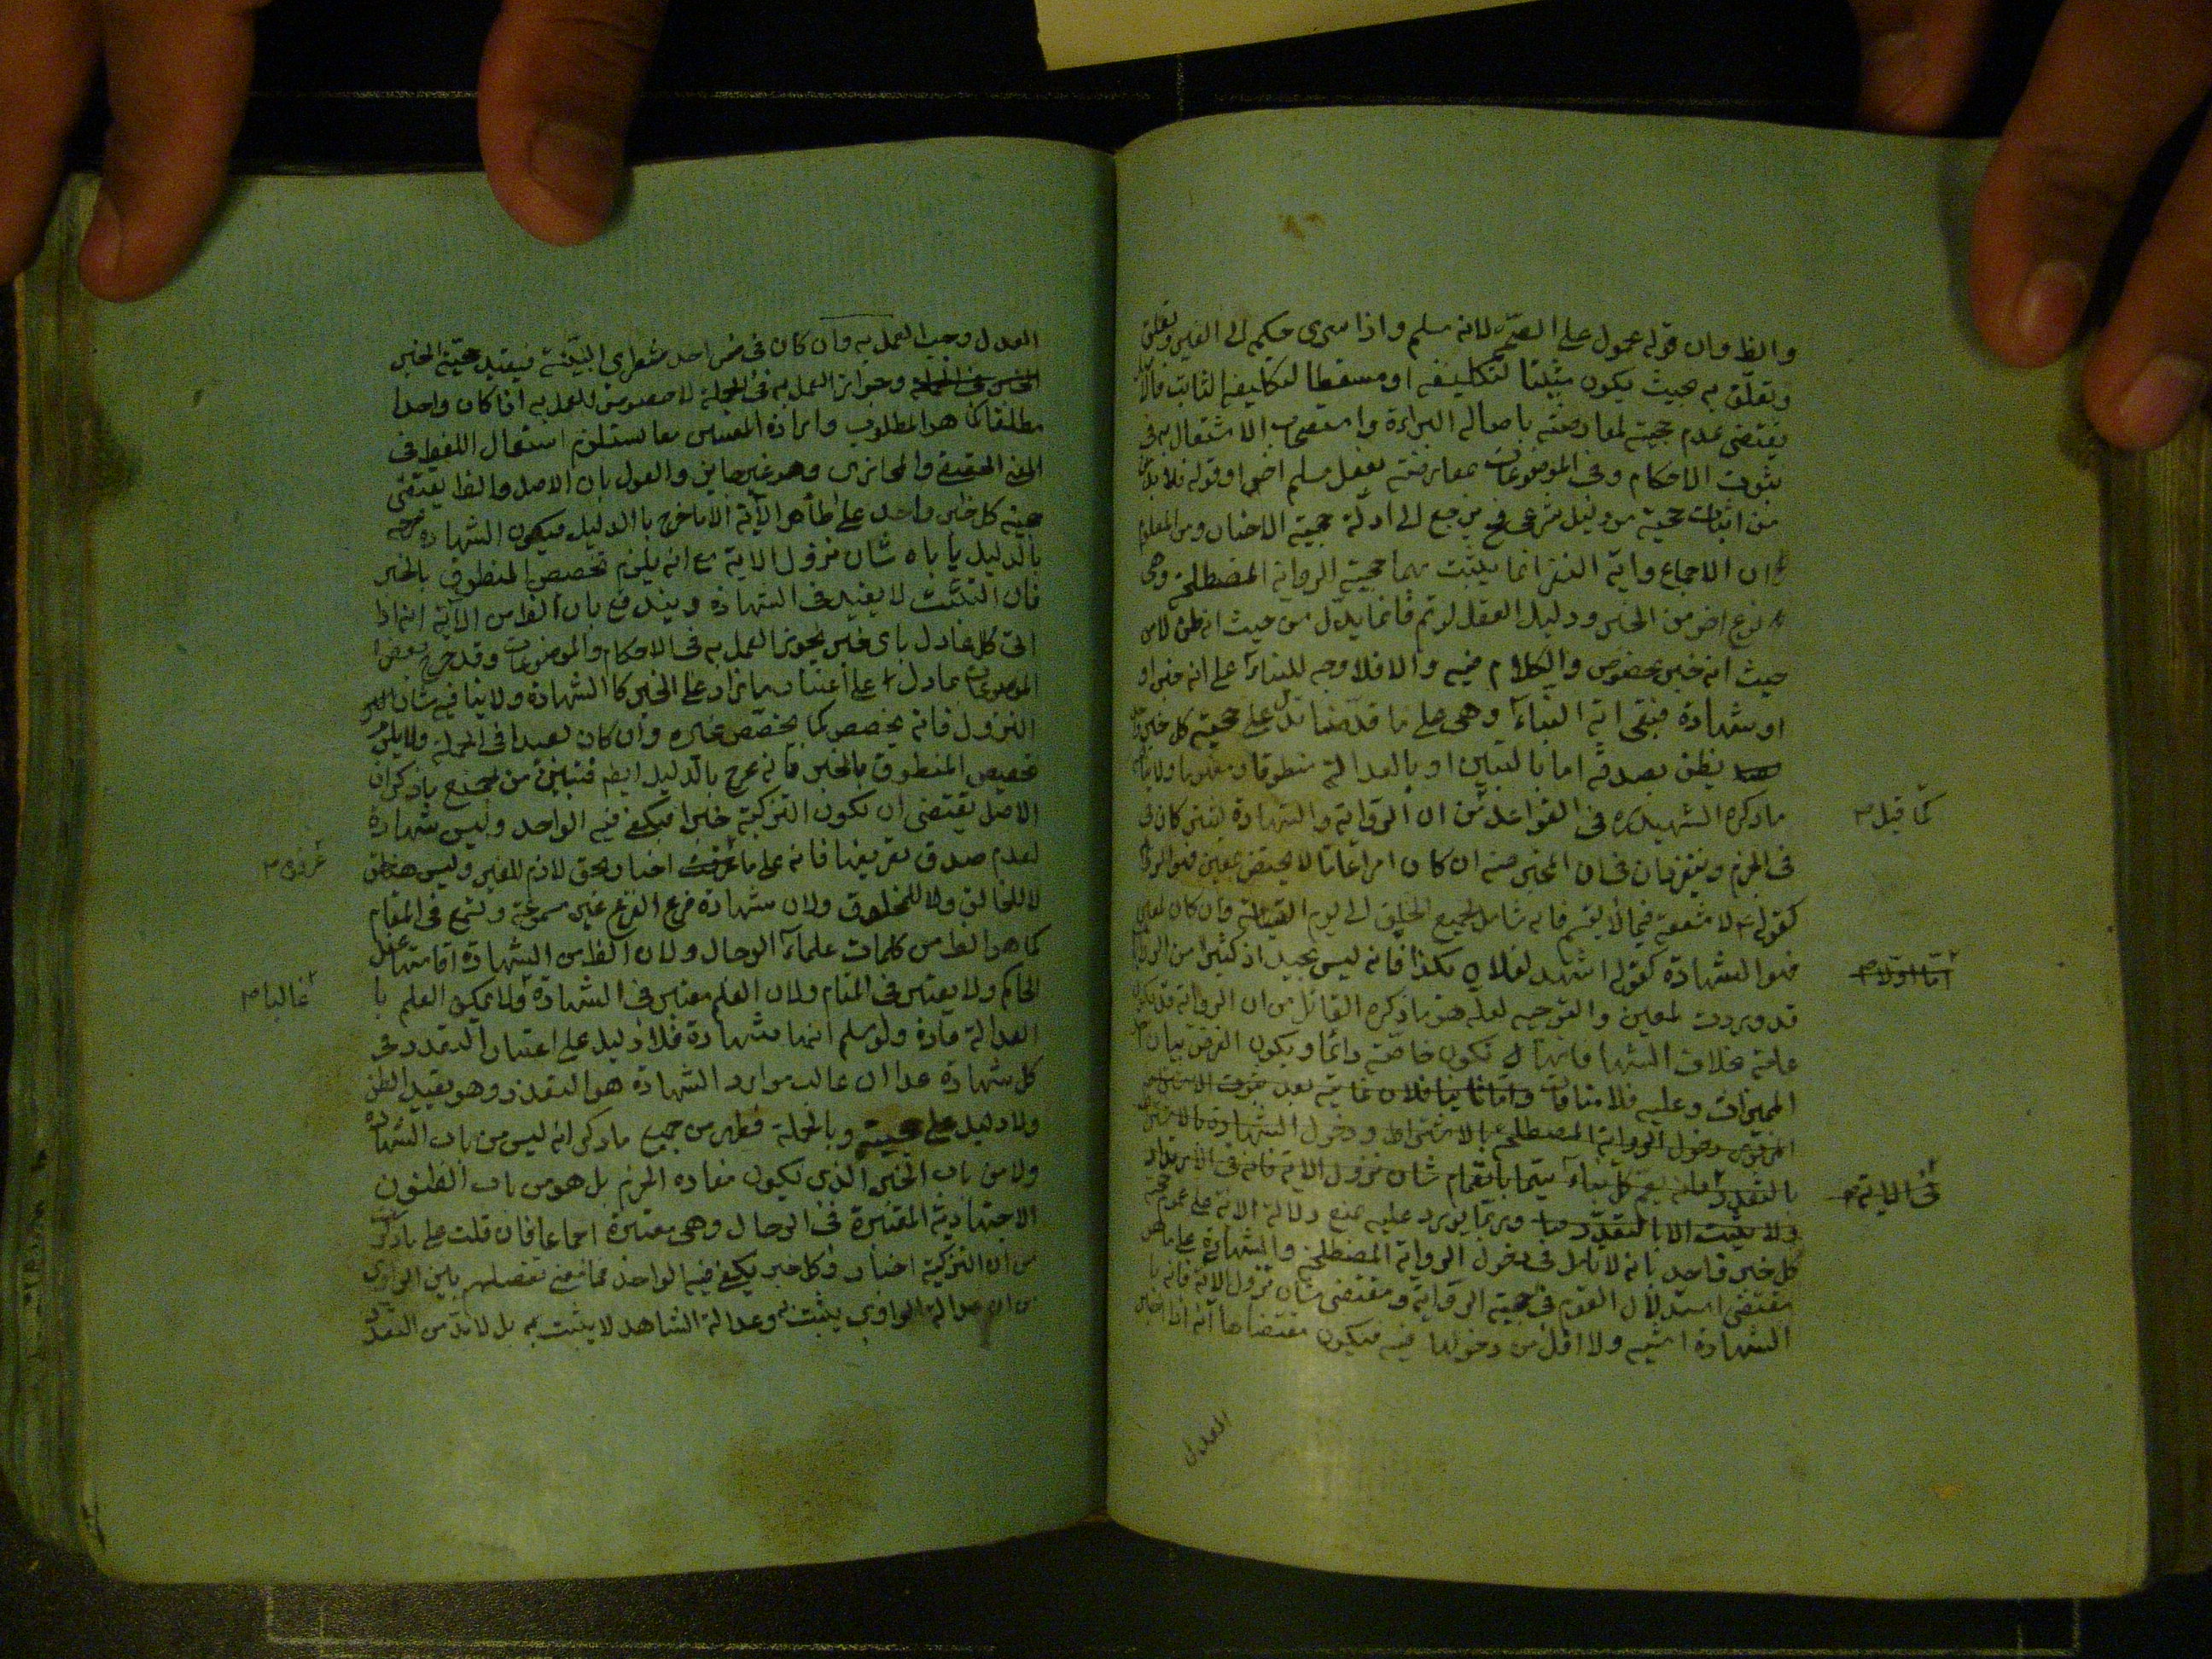 والظ وان قوله محمول على الصحّة لانه مسلم واذا سرى حكمه الى الغير وتعلق
وتعلّق به بحيث يكون مثبتا لتكليفه او مسقطا لتكليفه الثابت فالاصل
يقتضى عدم حجيته لمعارضته باصالة البراءة واستصحاب الاشتغال به فى
ثبوت الاحكام وفى الموضوعات بمعارضته بفعل مسلم اخر او قوله فلا بد
من اثبات حجية من دليل شرعى فح يرجع الى ادلّة حجية الاخبار ومن المعلوم
ان الاجماع واية النفر انما يثبت بهما حجية الرواية المصطلحة وهى
نوع اخر من الخبر ودليل العقل لو تم فانما يدل من حيث انه ظن لا من
حيث انه خبر بخصوص والكلام فيه والا فلا وجه للبناء على انه خبر او
او شهادة فبقى اية النباء وهى على ما قدّمنا تدل على حجية كل خبر
يظن بصدقه اما بالتبين او بالعدالة منطوقا ومفهوما ولا ينافى
ماذكره الشهيد ره فى القواعد من ان الرواية والشهادة يشتركان فى
كما قيل
فى الجزم ويفترقان فى ان المخبر عنه ان كان امرا عاما لا يختص بمعين فهو الرواية
كقوله ع لا شفعة فيما لا يقسم فانه شامل لجميع الخلق الى يوم القيامة وان كان لمعين
فهو الشهادة كقوله اشهد لفلان بكذا فانه ليس بجيد اذ كثيرا من الروايات
اما اولا
قد وردت لمعين والتوجيه لعله هو ماذكره القائل من ان الرواية قد يكون
عامة بخلاف الشهادة فانها لا تكون خاصّة دائما ويكون الغرض بيان
المميزات وعليه فلا منافات واما ثانيا فلان غايته بعد ثبوت
الفرق دخول الرواية المصطلحة بالاشتراط ودخول الشهادة
بالتعدد فانه يعم كل نباء سيما بانضمام شان نزول الاية فانه فى الارتداد
فى الاية
ولا يثبت الا بالتعدد وربما يورد عليه بمنع دلالة الاية على عموم حجية
كل خبر واحد بانه لا تامل فى دخول الرواية المصطلحة والشهادة على ما هو
مقتضى استدلال القوم فى حجية الرواية ومقتضى شان نزول الاية فانه با
الشهادة اشبه ولا اقل من دخولها فيه فيكون مقتضاها انه اذا اخبر
العدل
العدل وجب العمل به وان كان فى ضمن احد شطرى البيّنة فيفيد حجية الخبر
الخبر فى الجملة وجواز العمل به فى الجملة لا خصوص للعمل به اذا كان واحدا
مطلقا كما هو المطلوب وارادة المعنيين معا يستلزم استعمال اللفظ فى
المعنى الحقيقى والمجازى وهو غير جايز والقول بان الاصل والظ يقتضى
حجية كل خبر واحد على ظاهر الآية الا ما خرج بالدليل فيكون الشهادة
بالدليل ياباه شان نزول الاية مع انه يلزم تخصيص المنطوق بالخبر
فان التثبت لا يفيد فى الشهادة ويندفع بان الظ من الآية انه اذا
اتى كل عادل باى خبر يجوز العمل به فى الاحكام والموضوعات وقد خرج بعض
الموضوعات بما دل على اعتبار ما زاد على الخبر كالشهادة ولا ينافيه شان
النزول فانه يخصص كما يخصّص غيره وان كان بعيدا فى الجملة ولا يلزم
تخصيص المنطوق بالخبر فانه خرج بالدليل ايضا فتبين من جميع ماذكر ان
الاصل يقتضى ان تكون التزكية خبرا فيكفى فيه الواحد وليس شهادة
لعدم صدق تعريفها فانه على ما عرفت اخبار بحق لازم للغير وليس
عرفوه
لا للخالق ولا للمخلوق ولان شهادة فرع الفرع غير مسموعة وتسمع فى المقام
كما هو الظ من كلمات علماء الرجال ولان الظ من الشهادة اقامتها عند
الحاكم ولا يعتبر فى المقام ولان العلم معتبر فى الشهادة ولا يمكن العلم با
غالبا
العدالة عادة ولو سلم انها شهادة فلا دليل على اعتبار التعدد فى
كل شهادة عدا ان غالب موارد الشهادة هو التعدد وهو يفيد الظن
ولا دليل على حجيته وبالجملة فظهر من جميع ماذكر انه ليس من باب الشهادة
ولا من باب الخبر الذى يكون مفاده الجزم بل هو من باب الظنون
الاجتهادية المعتبرة فى الرجال وهى معتبرة اجماعا فان قلت على ماذكرت
من ان التزكية اخبار وكل خبر يكفى فيه الواحد فما معنى تفصيلهم بين الراوى
من ان عدالة الراوى يثبت به وعدالة الشاهد لا يثبت به بل لابدّ من التعدد